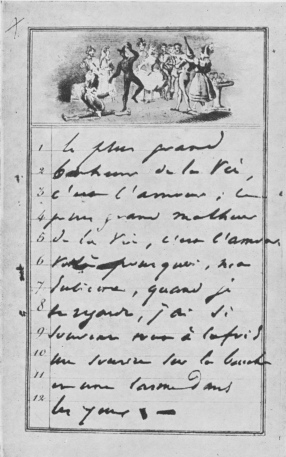 1 Le plus grand
2 bonheur de la vie,
3 c'est l'amour; le
4 plus grand malheur
5 de la vie, c'est l'amour
6 Voilà pourquoi, ma
7 quand je
8 regarde, j'ai si
9 souvent à la fois
10 un sourire sur la bouche
11 et une larme dans
12 les yeux